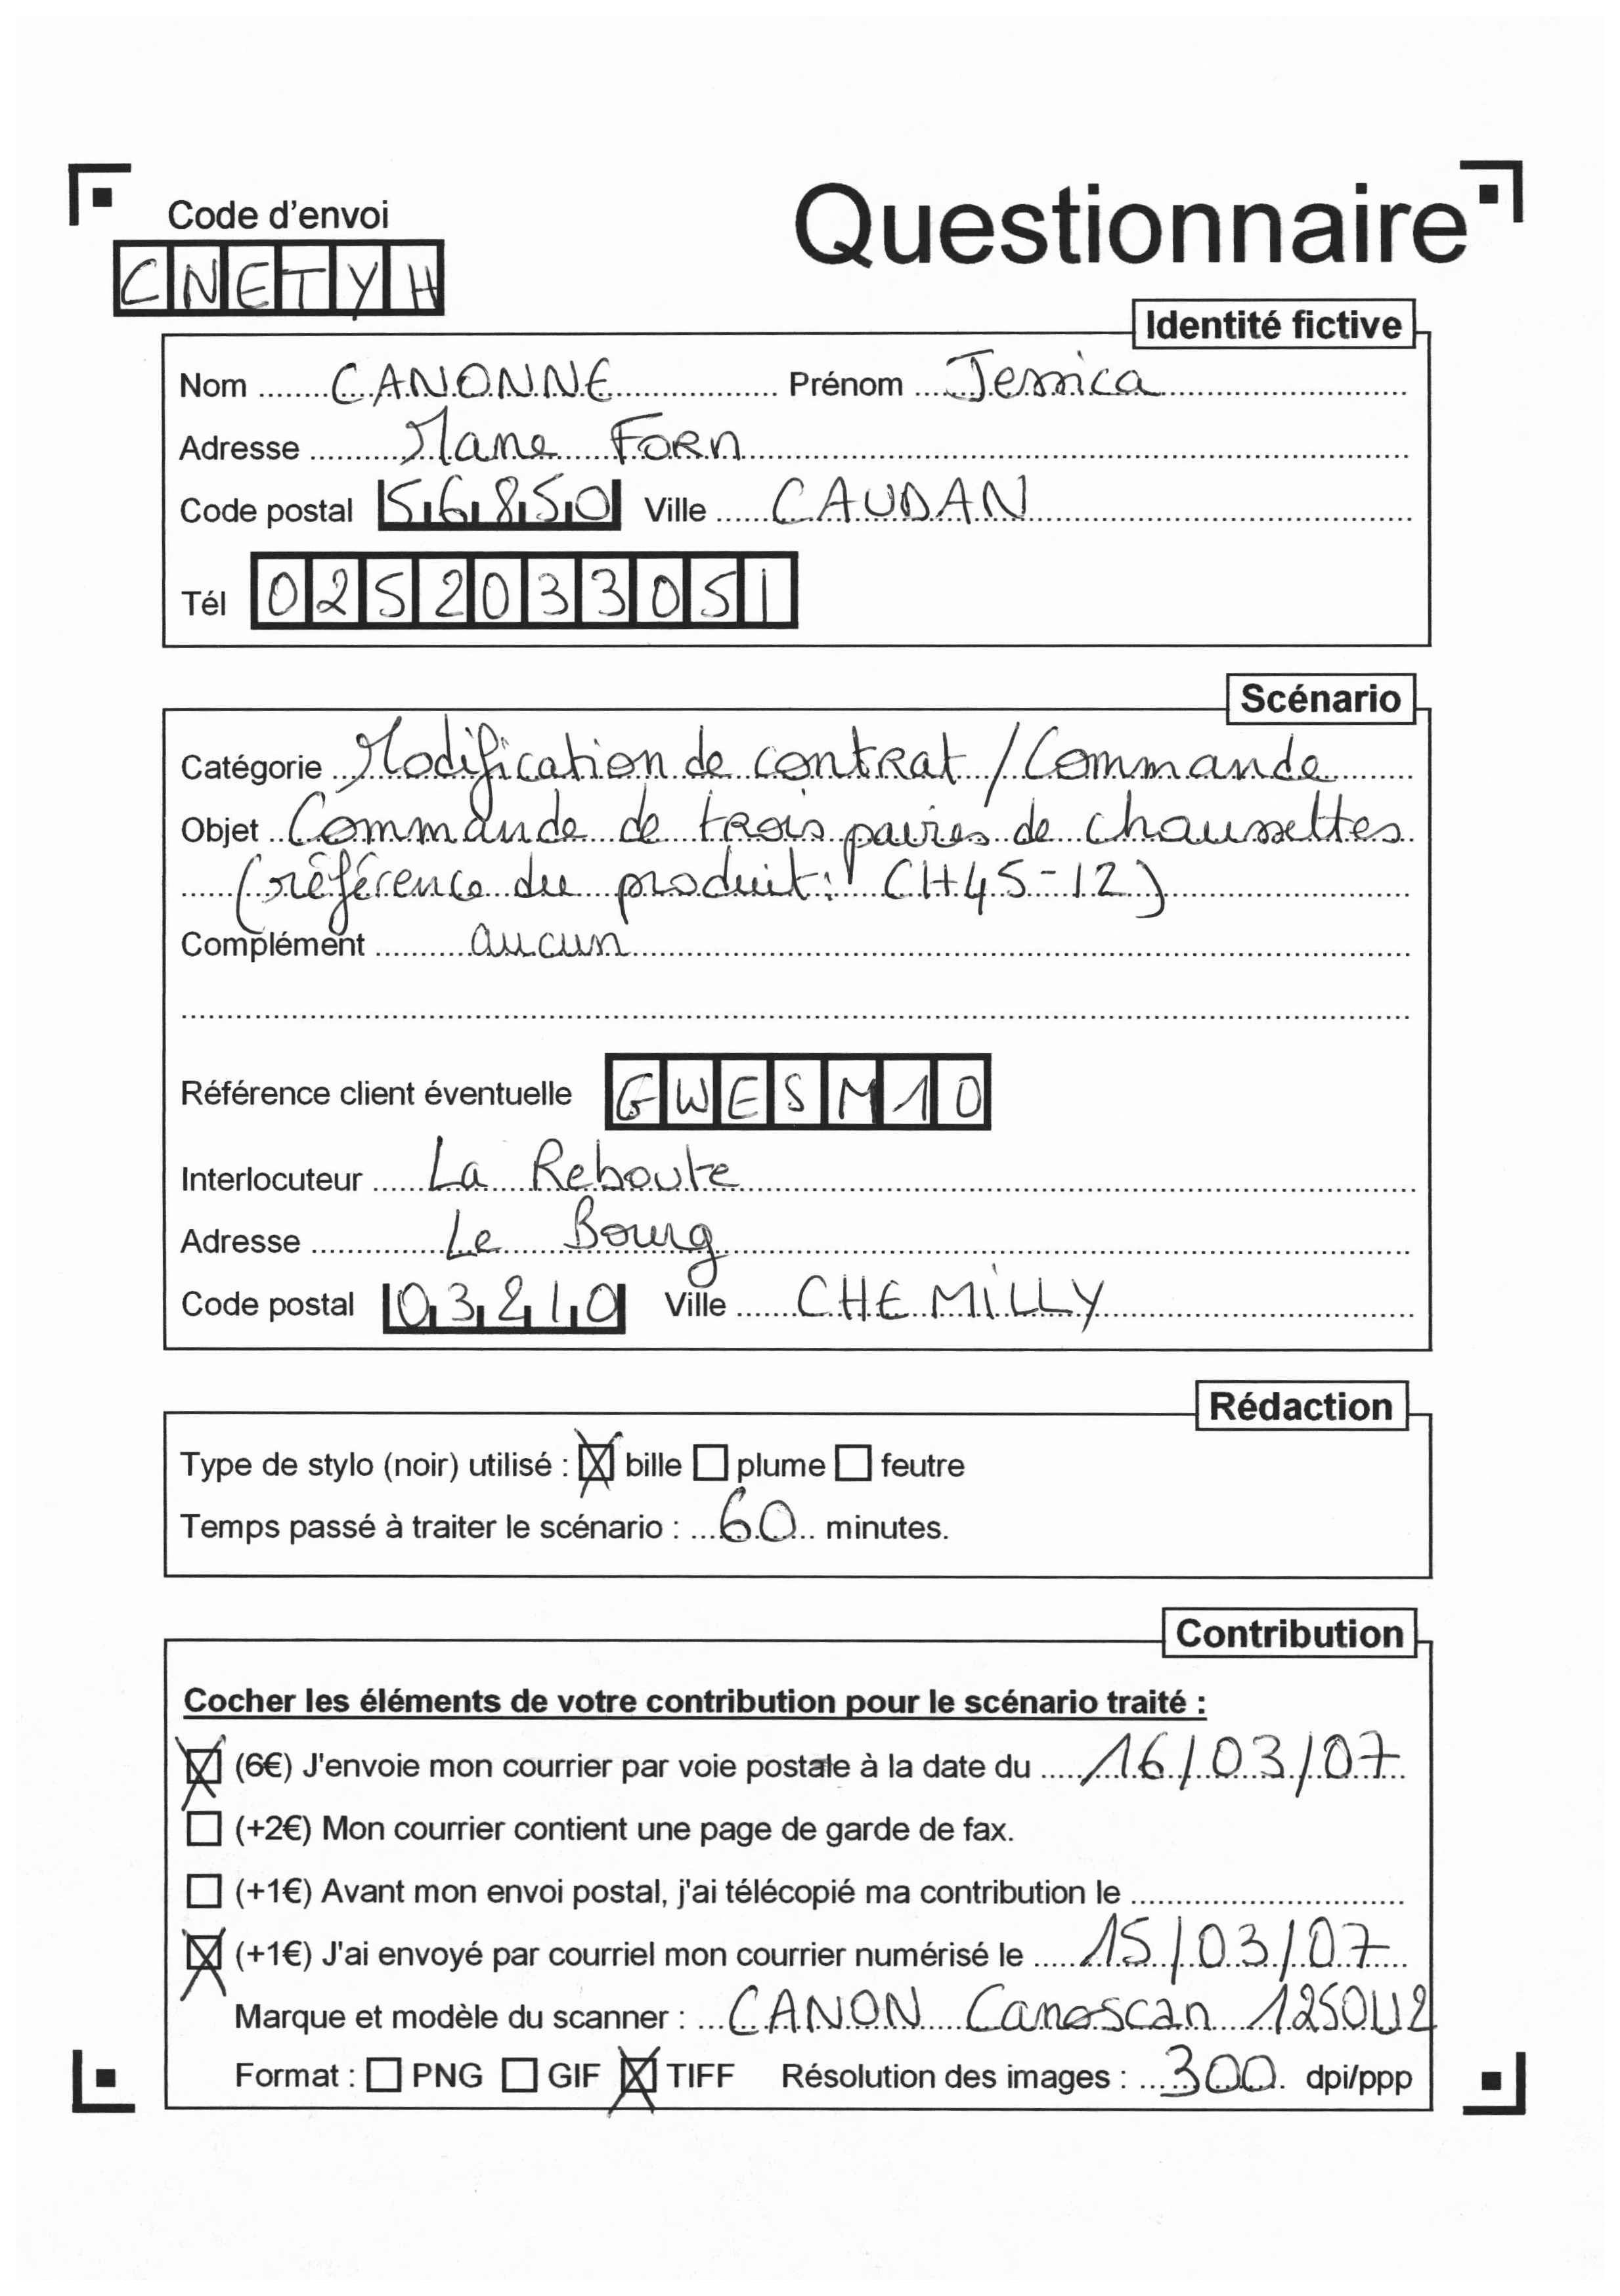 Code d'envoi
Questionnaire
CNETYH
Identité fictive
Nom ....... CANONNE ............... Prénom ... Jessica ...............
Adresse .......... Mane Forn ...............
Code postal 56850 Ville ...... CAUDAN ...............
Tél 0252033051
Scénario
Catégorie ... Modification de contrat / Commande .......
Objet .. Commande de trois paires de chaussettes
(référence du produit: CH45-12)
Complément .......... aucun ...............
Référence client éventuelle GWESM10
Interlocuteur ..... La Reboute ...............
Adresse ............. Le Bourg ...............
Code postal 03210 Ville ...... CHEMILLY ...............
Rédaction
Type de stylo (noir) utilisé : ☒ bille ☐ plume ☐ feutre
Temps passé à traiter le scénario : ... 60 ... minutes.
Contribution
Cocher les éléments de votre contribution pour le scénario traité :
☒ (6€) J'envoie mon courrier par voie postale à la date du ..... 16/03/07
☐ (+2€) Mon courrier contient une page de garde de fax.
☐ (+1€) Avant mon envoi postal, j'ai télécopié ma contribution le ...............
☒ (+1€) J'ai envoyé par courriel mon courrier numérisé le ..... 15/03/07
Marque et modèle du scanner : ... CANON Canoscan 1250U2
Format : ☐ PNG ☐ GIF ☒ TIFF Résolution des images : ... 300 ... dpi/ppp